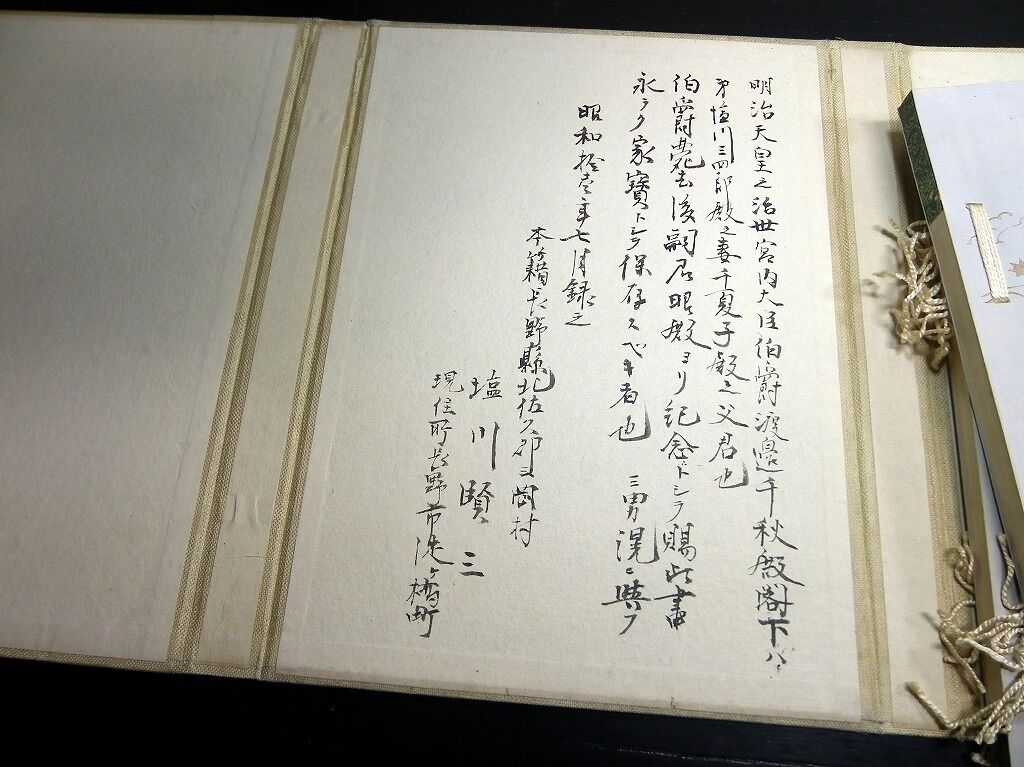 明治天皇之治世宮内大臣伯爵渡邉千秋殿閣下ハ
弟塩川三四郎殿之妻千夏子殿之父君也
伯爵薨去後嗣君昭殿ヨリ紀念トシテ賜此書
永ラク家寶トシテ保存スベキ者也 三男滉ニ與フ
昭和拾壱年七月録之
本籍長野縣北佐久郡三岡村
塩川賢三
現住所長野市淀ヶ橋町